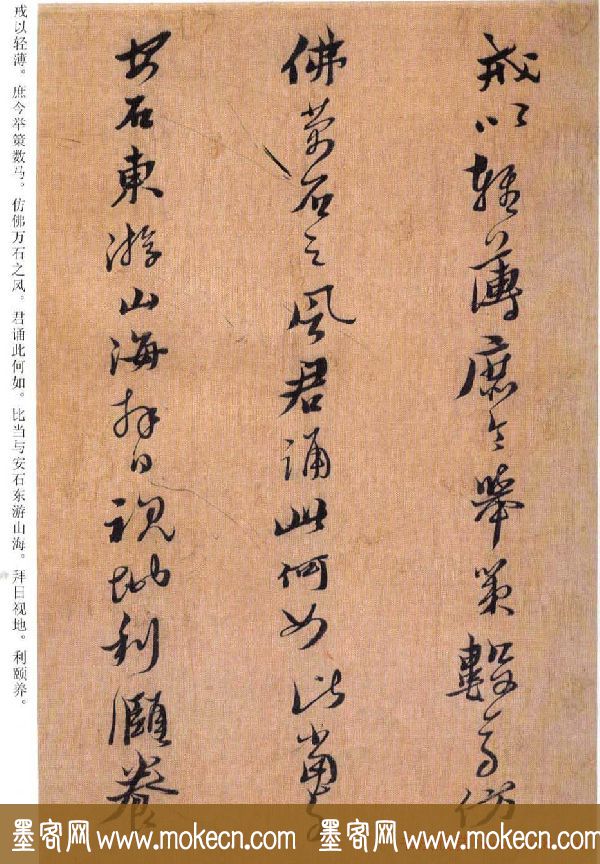 戒以輕薄庶令舉策數馬仿
佛萬石之風君誦此何如比當与
安石東游山海并日視地利頤養
戒以轻薄。庶今举策数马。仿佛万石之风。君诵此何如。比当与安石东游山海。拜日视地。利颐养。
墨客网 www.mokecn.com 墨客网 www.mokecn.com